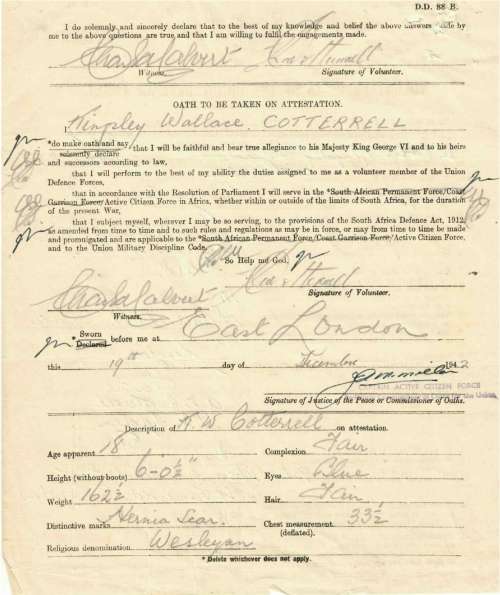 D.D. 88 E.
I do solemnly, and sincerely declare that to the best of my knowledge and belief the above answers made by
me to the above questions are true and that I am willing to fulfil the engagements made.
Chas Calvert
Witness. Signature of Volunteer.
OATH TO BE TAKEN ON ATTESTATION.
I, Kingsley Wallace COTTERRELL
*do make oath and say
solemnly declare
that I will be faithful and bear true allegiance to his Majesty King George VI and to his heirs
and successors according to law,
that I will perform to the best of my ability the duties assigned to me as a volunteer member of the Union
Defence Forces,
that in accordance with the Resolution of Parliament I will serve in the *South African Permanent Force/Coast
Garrison Force/Active Citizen Force in Africa, whether within or outside of the limits of South Africa, for the duration
of the present War,
that I subject myself, wherever I may be so serving, to the provisions of the South Africa Defence Act, 1912,
as amended from time to time and to such rules and regulations as may be in force, or may from time to time be made
and promulgated and are applicable to the *South African Permanent Force/Coast Garrison Force/Active Citizen Force,
and to the Union Military Discipline Code.
So Help me God.
Chas Calvert
Witness. Signature of Volunteer.
* Sworn
Declared before me at East London
this 19th day of December 1942
CITIZEN FORCE
ACTIVE
for the Union
Signature of Justice of the Peace or Commissioner of Oaths.
Description of K W Cotterrell on attestation.
Age apparent 18 Complexion Fair
Height (without boots) 6-0½" Eyes Blue
Weight 162½ Hair Fair
Distinctive marks Hernia Scar. Chest measurement 33½
(deflated).
Religious denomination Wesleyan
* Delete whichever does not apply.